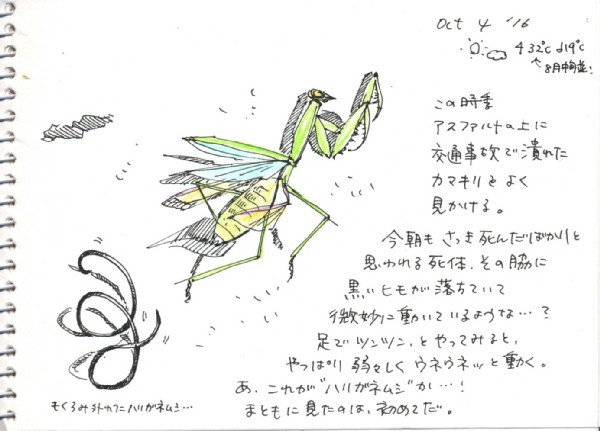 Oct 4 '16
432℃ d19℃
↖8月中旬並!
この時季
アスファルトの上に
交通事故で潰れた
カマキリをよく
見かける。
今朝も さっき死んだばかりと
思われる死体、その脇に
黒いヒモが落ちていて
微妙に動いているような…?
足でツンツン、とやってみると、
やっぱり弱々しくウネウネッと動く。
あ、これが"ハリガネムシ"か…!
まともに見たのは、初めてだ。
もくろみ外れたハリガネムシ…